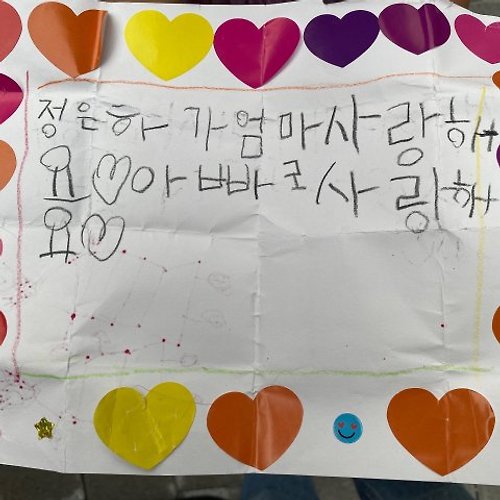 정은하 가엄마사랑해
요♡아빠로사링해
요♡